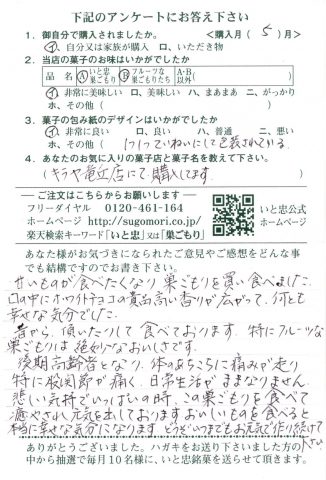 下記のアンケートにお答え下さい
1. 御自分で購入されましたか。 <購入月( 5 )月>
イ. 自分又は家族が購入 ロ. いただき物
2. 当店の菓子のお味はいかがでしたか
品 名 A いと忠巣ごもり B フルーツな巣ごもりたち A・B以外( )
イ. 非常に美味しい ロ. 美味しい ハ. まあまあ ニ. がっかり
ホ. その他( )
3. 菓子の包み紙のデザインはいかがでしたか
イ. 非常に良い ロ. 良い ハ. 普通 ニ. 悪い
ホ. その他( 1つ1つていねいにして包装されている )
4. あなたのお気に入りの菓子店と菓子名を教えて下さい。
( キラヤ竜丘店にて購入してます )
―ご注文はこちらからお願いします―
フリーダイヤル 0120-461-164
ホームページ http://sugomori.co.jp/
楽天検索キーワード「いと忠」又は「巣ごもり」
いと忠公式
ホームページ
あなた様がお気づきになられたご意見やご感想をどんな事
でも結構ですのでお書き下さい。
甘いものが食べたくなり 巣ごもりを買い食べました
口の中にホワイトチョコの香りが広がって、何とも
幸せな気分でした。
昔から、頂いたりして 食べております。特にフルーツな
巣ごもりは 絶妙なおいしさです。
後期高齢者となり、体のあちこちに痛みが走り
特に股関節が痛く、日常生活が ままなりません
悲しい気持でいっぱいの時、この巣ごもりを食べて
癒やされ元気を出しております おいしいものを食べると
本当に幸せな気分になります どうぞいつまでもお元気で作り続けて下さい
ありがとうございました。ハガキをお送り下さいました方の
中から抽選で毎月10名様に、いと忠銘菓を送らせて頂きます。